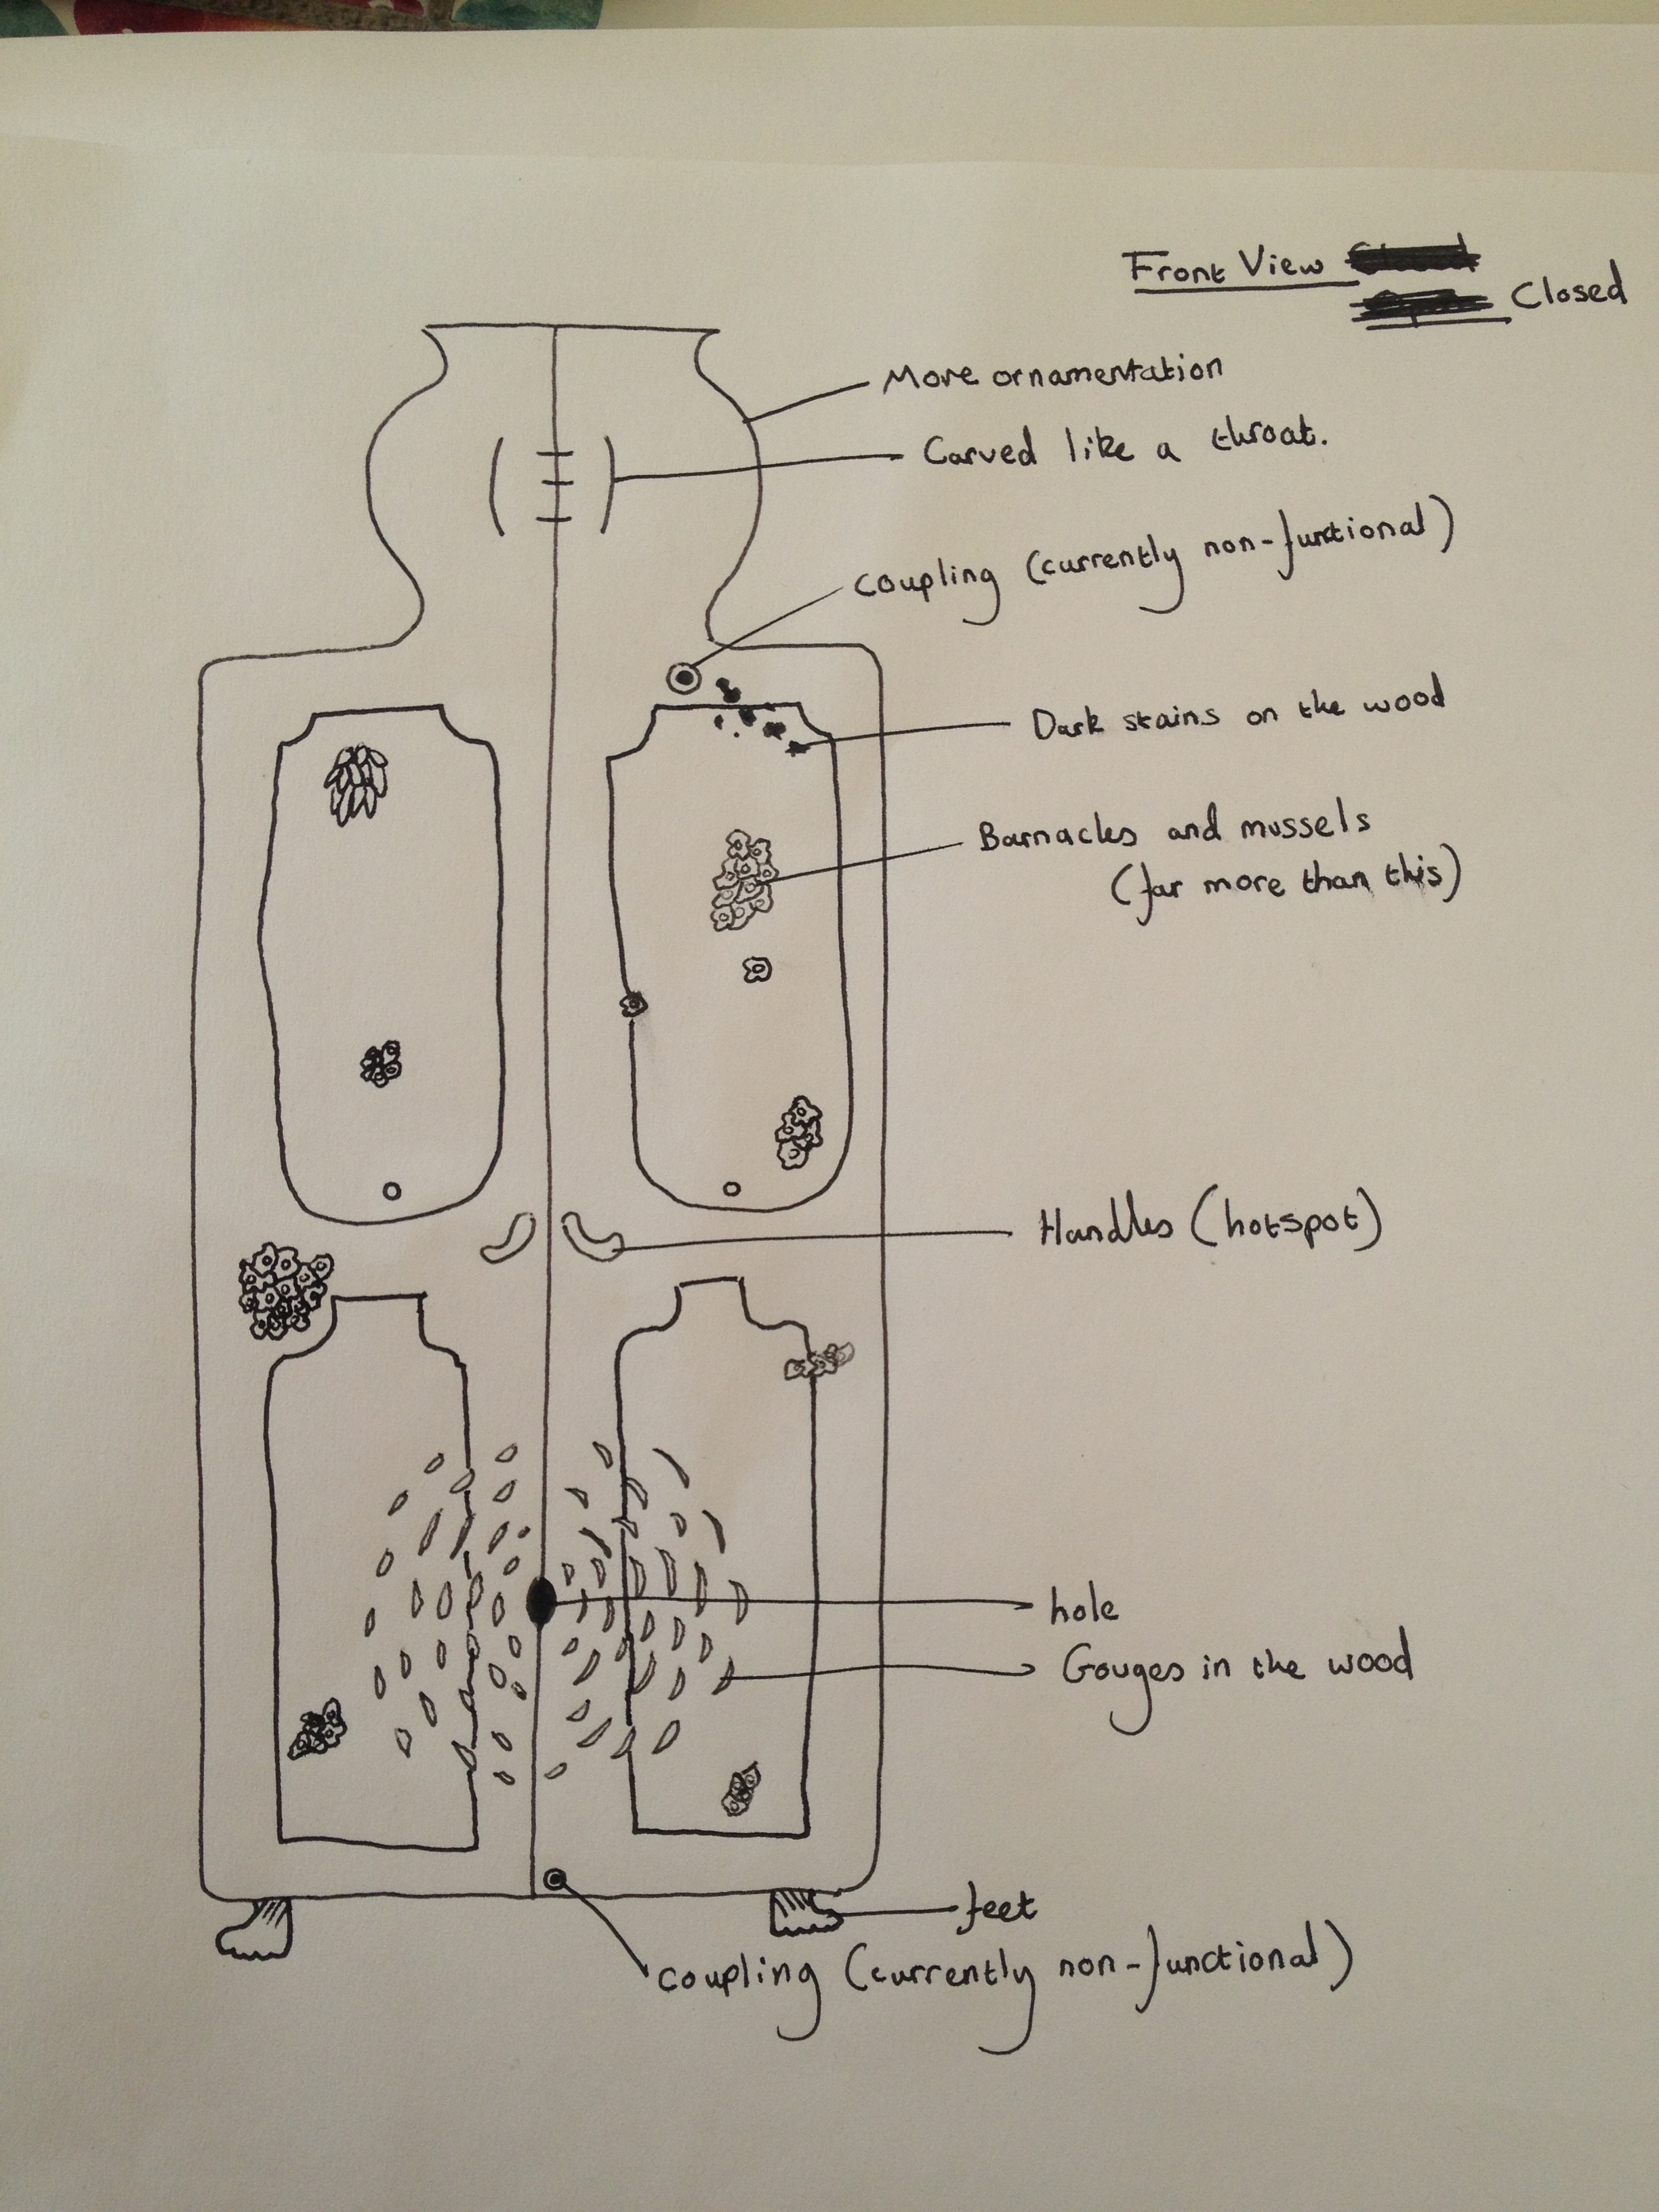 Front View
Closed
More ornamentation
Carved like a throat.
coupling (currently non-functional)
Dark stains on the wood
Barnacles and mussels
(far more than this)
Handles (hotspot)
hole
Gouges in the wood
feet
coupling (currently non-functional)